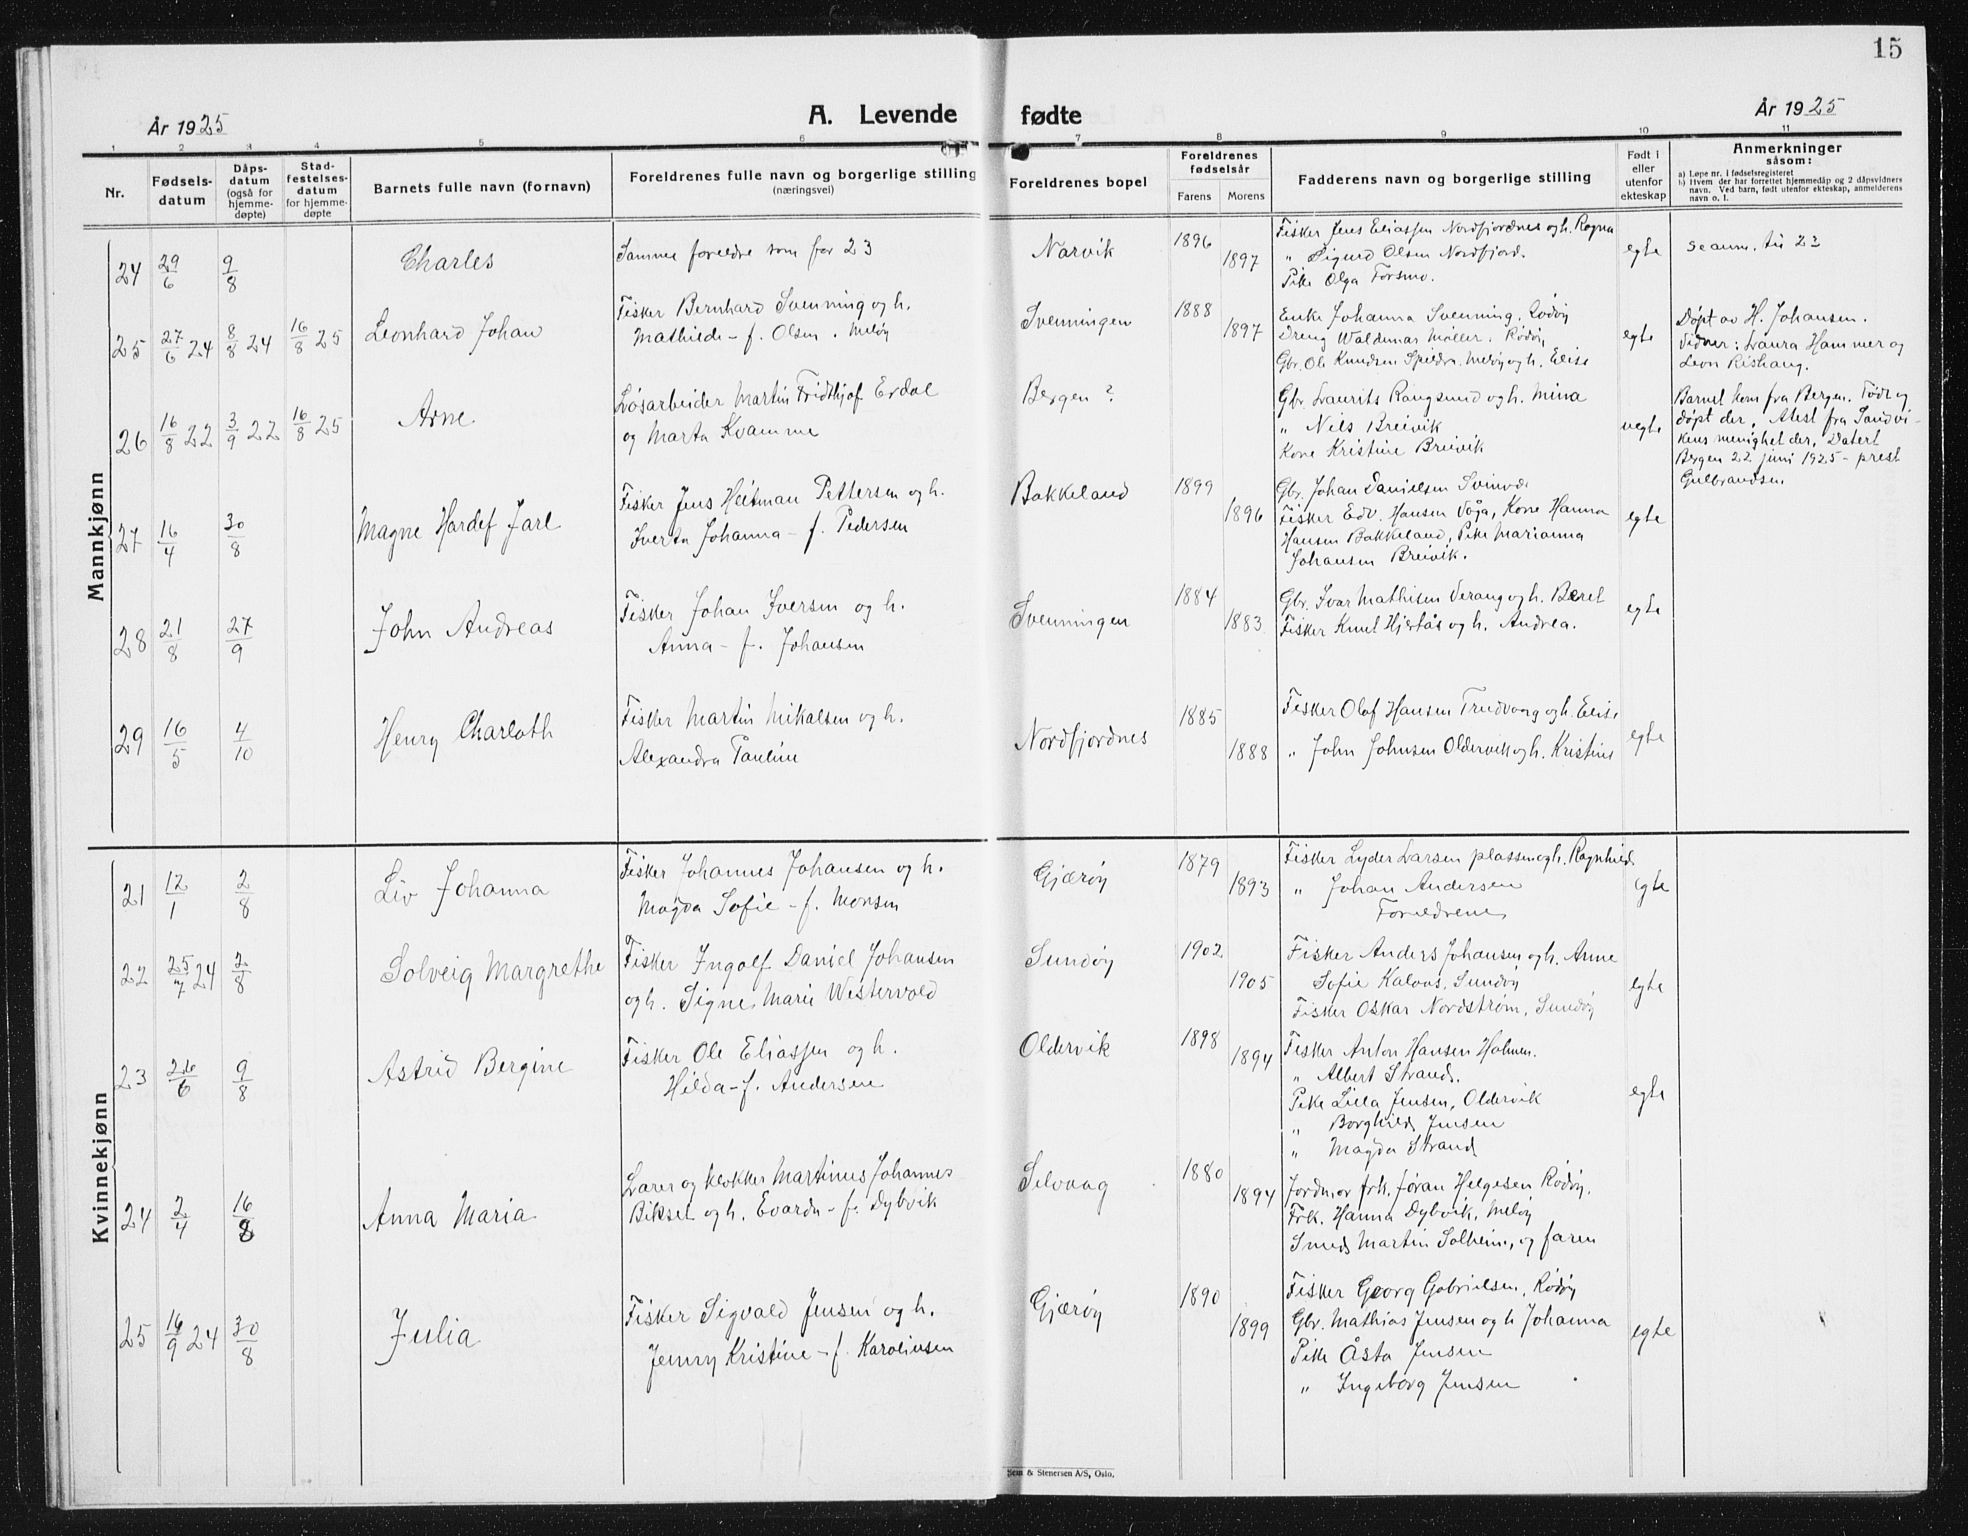 15
År 1925
A. Levende fødte
År 1925
1 2 3 4 5 6 7 8 9 10 11
Nr.
Fødsels-
datum
Dåps-
datum
(også for
hjemme-
døpte)
Stad-
festelses-
datum
for hjemme-
døpte
Barnets fulle navn (fornavn)
Foreldrenes fulle navn og borgerlige stilling
(næringsvei)
Foreldrenes bopel
Foreldrenes
fødselsår
Farens Morens
Fadderens navn og borgerlige stilling
Født i
eller
utenfor
ekteskap
Anmerkninger
såsom:
a) Løpe nr. i fødselsregisteret
b) Hvem der har forrettet hjemmedåp og 2 dåpsvidners
navn. Ved barn, født utenfor ekteskap, anmelderens
navn o. l.
Mannkjønn
24 29/6 9/8 Charles
Samme foreldre som for 23
Narvik 1896 1897
Fisker Jens Eliassen Nordfjordnes og h. Ragna
" Sigurd Olsen Nordfjord.
Pike Olga Forsmo.
egte
se anm. til 23
25 27/6 24 8/8 24 16/8 25 Leonhard Johan
Fisker Bernhard Svenning og h.
Mathilde - f. Olsen. Meløy
Svenningen 1888 1897
Enke Johanna Svenning, Rødøy
Dreng Waldemar Møller. Rødøy
Gbr. Ole Knudsen Spildra. Meløy og h. Elise
egte
Døpt av H. Johansen.
Vidner: Laura Hammer og
Leon Rishaug.
26 16/8 22 3/9 22 16/8 25 Arne
Løsarbeider Martin Fridthjof Erdal
og Marta Kvamme
Bergen ?
Gbr. Laurits Rangsund og h. Mina
" Nils Breivik
Kone Kristine Breivik
uegte
Barnet kom fra Bergen. Født og
døpt der. Atest fra Sandvi-
kens menighet der. Datert
Bergen 22 juni 1925 - prest
Gulbrandsen
27 16/4 30/8 Magne Hardef Jarl
Fisker Jens Heitman Pettersen og h.
Iverta Johanna - f. Pedersen
Bakkeland 1899 1896
Gbr. Johan Danielsen Svinvær
Fisker Edv. Hansen Våga, Kone Hanna
Hansen Bakkeland, Pike Marianna
Johansen Breivik.
egte
28 21/8 27/9 John Andreas
Fisker Johan Iversen og h.
Anna - f. Johansen
Svenningen 1884 1883
Gbr. Ivar Mathisen Verang og h. Beret
Fisker Knut Hjertås og h. Andrea.
egte
29 16/5 4/10 Henry Charloth
Fisker Martin Mikalsen og h.
Alexandra Pauline
Nordfjordnes 1885 1888
Fisker Olaf Hansen Trudvang og h. Elise
" John Johnsen Oldervik og h. Kristine
egte
Kvinnekjønn
21 12/1 2/8 Liv Johanna
Fisker Johannes Johansen og h.
Magda Sofie - f. Monsen
Gjærøy 1879 1893
Fisker Lyder Larsen plassen og h. Ragnhild.
" Johan Andersen
Foreldrene
egte
22 25/7 24 2/8 Solveig Margrethe
Fisker Ingolf Daniel Johansen
og h. Signe Marie Westervold
Sundøy 1902 1905
Fisker Anders Johansen og h. Anne
Sofie Kalvås, Sundøy
Fisker Oskar Nordstrøm, Sundøy
egte
23 26/6 9/8 Astrid Bergine
Fisker Ole Eliassen og h.
Hilda - f. Andersen
Oldervik 1898 1894
Fisker Anton Hansen Holmen.
" Albert Strand.
Pike Lilla Jensen, Oldervik
" Borghild Jensen
" Magda Strand
egte
24 2/4 16/8 Anna Maria
Lærer og klokker Martinus Johannes
Biksel og h. Evarda - f. Dybvik
Selvaag 1880 1894
Jordmor frk. Jøran Helgesen Rødøy.
Frk. Hanna Dybvik, Meløy
Smed Martin Solheim, og faren
25 16/9 24 30/8 Julia
Fisker Sigvald Jensen og h.
Jenny Kristine - f. Karolinsen
Gjærøy 1890 1899
Fisker Georg Gabrielsen, Rødøy
Gbr. Mathias Jensen og h Johanna
Pike Åsta Jensen
" Ingeborg Jensen
egte
Sem & Stenersen A/S, Oslo.